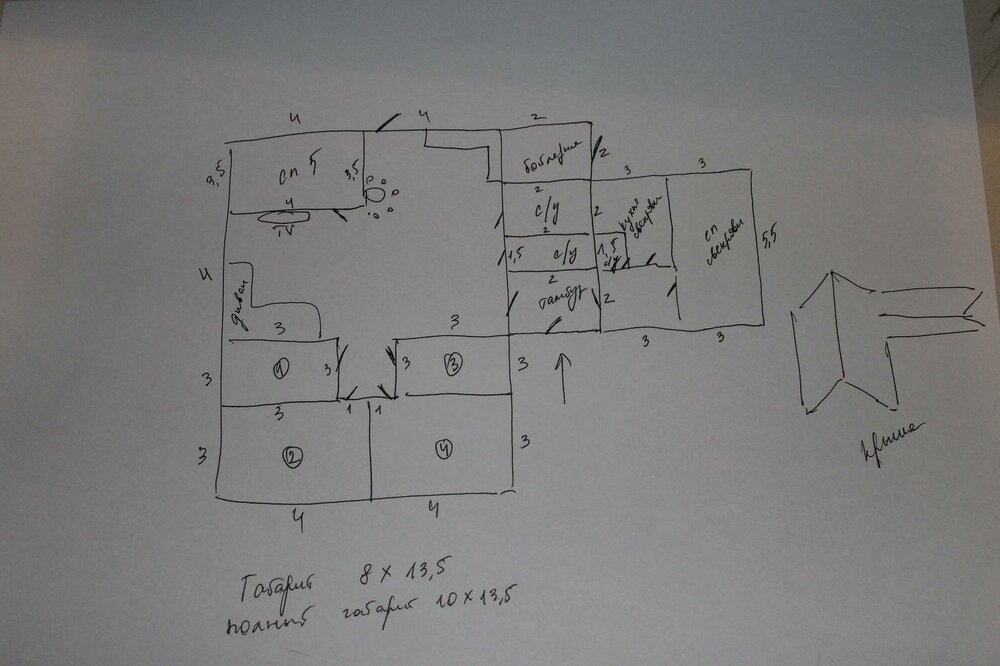 4
4
2
3,5
сп 5
3,5
бойлерная
2
4
TV
2
с/у
2
кухня свекрови
3
3
сп свекрови
5,5
2
1,5
с/у
1,5
с/у
4
диван
2
тамбур
2
3
3
3
3
3
①
3
3
③
3
3
1
1
3
②
④
3
4
4
крыша
Габарит 8 х 13,5
полный габарит 10 х 13,5